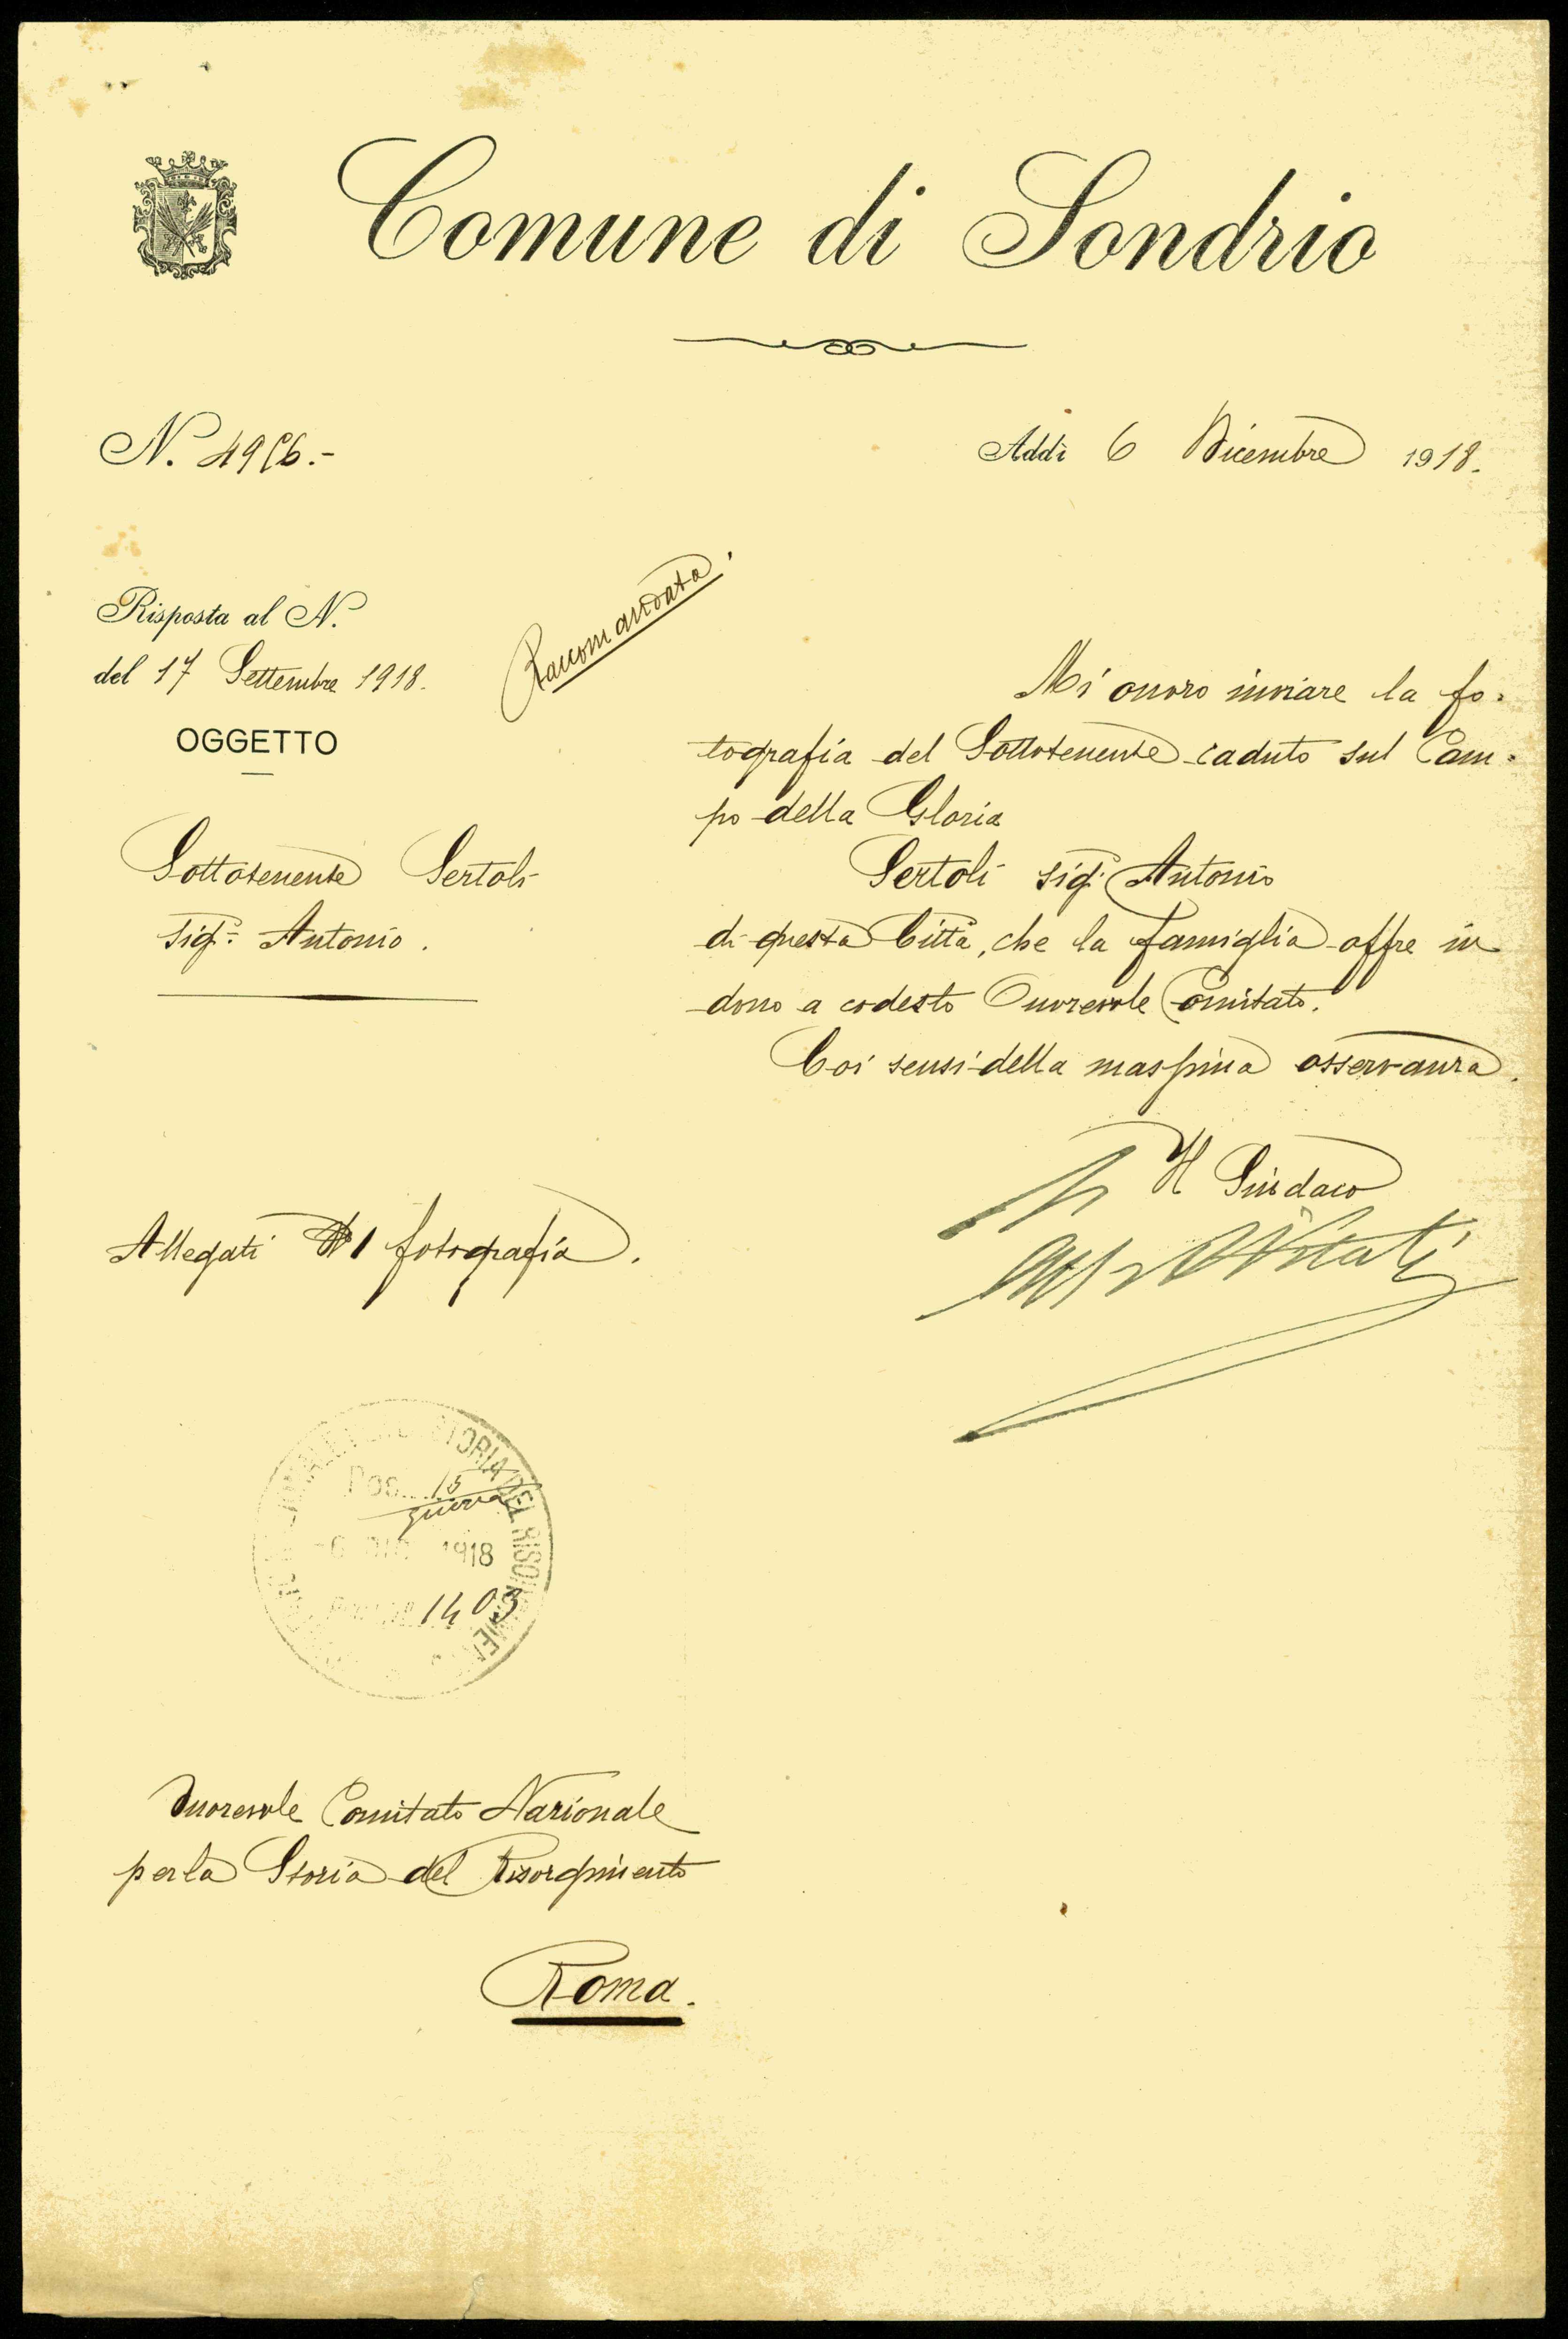 Comune di Sondrio
N.
Addì 6 Dicembre 1918.
Raccomandata.
Risposta al N.
del 17 Settembre 1918.
OGGETTO
Sottotenente Sertoli
Sigr. Antonio.
Mi onoro inviare la fo-
tografia del Sottotenente caduto sul Cam-
po della Gloria
Sertoli sigr. Antonio
di questa Città, che la famiglia offre in
dono a codesto Onorevole Comitato.
Coi sensi della massima osservanza.
Il Sindaco
Allegati N 1 fotografia.
STORIA DEL RISORGIMENTO
Pos. 15
guerra
1918
1403
Onorevole Comitato Nazionale
per la Storia del Risorgimento
Roma.